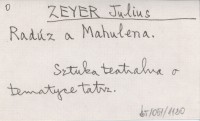 ZEYER Julius
Radúz a Mahulena.
Sztuka teatralna o
tematyce tatrz.